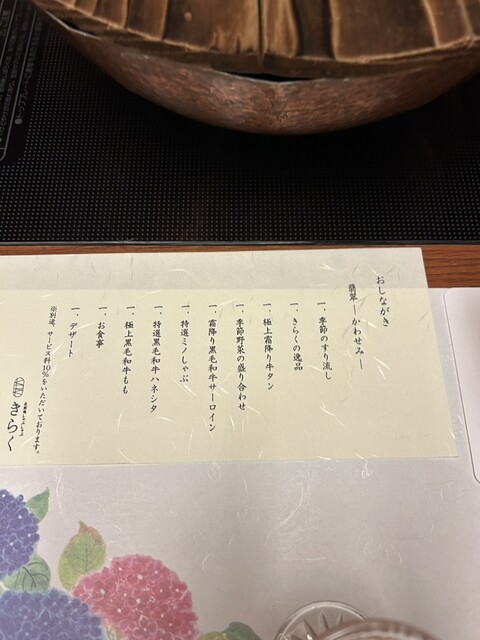 おしながき
翡翠 ―かわせみ―
一、季節のすり流し
一、きらくの逸品
一、極上霜降り牛タン
一、季節野菜の盛り合わせ
一、霜降り黒毛和牛サーロイン
一、特選ミノしゃぶ
一、特選黒毛和牛ハネシタ
一、極上黒毛和牛もも
一、お食事
一、デザート
※別途、サービス料10%をいただいております。
きらく